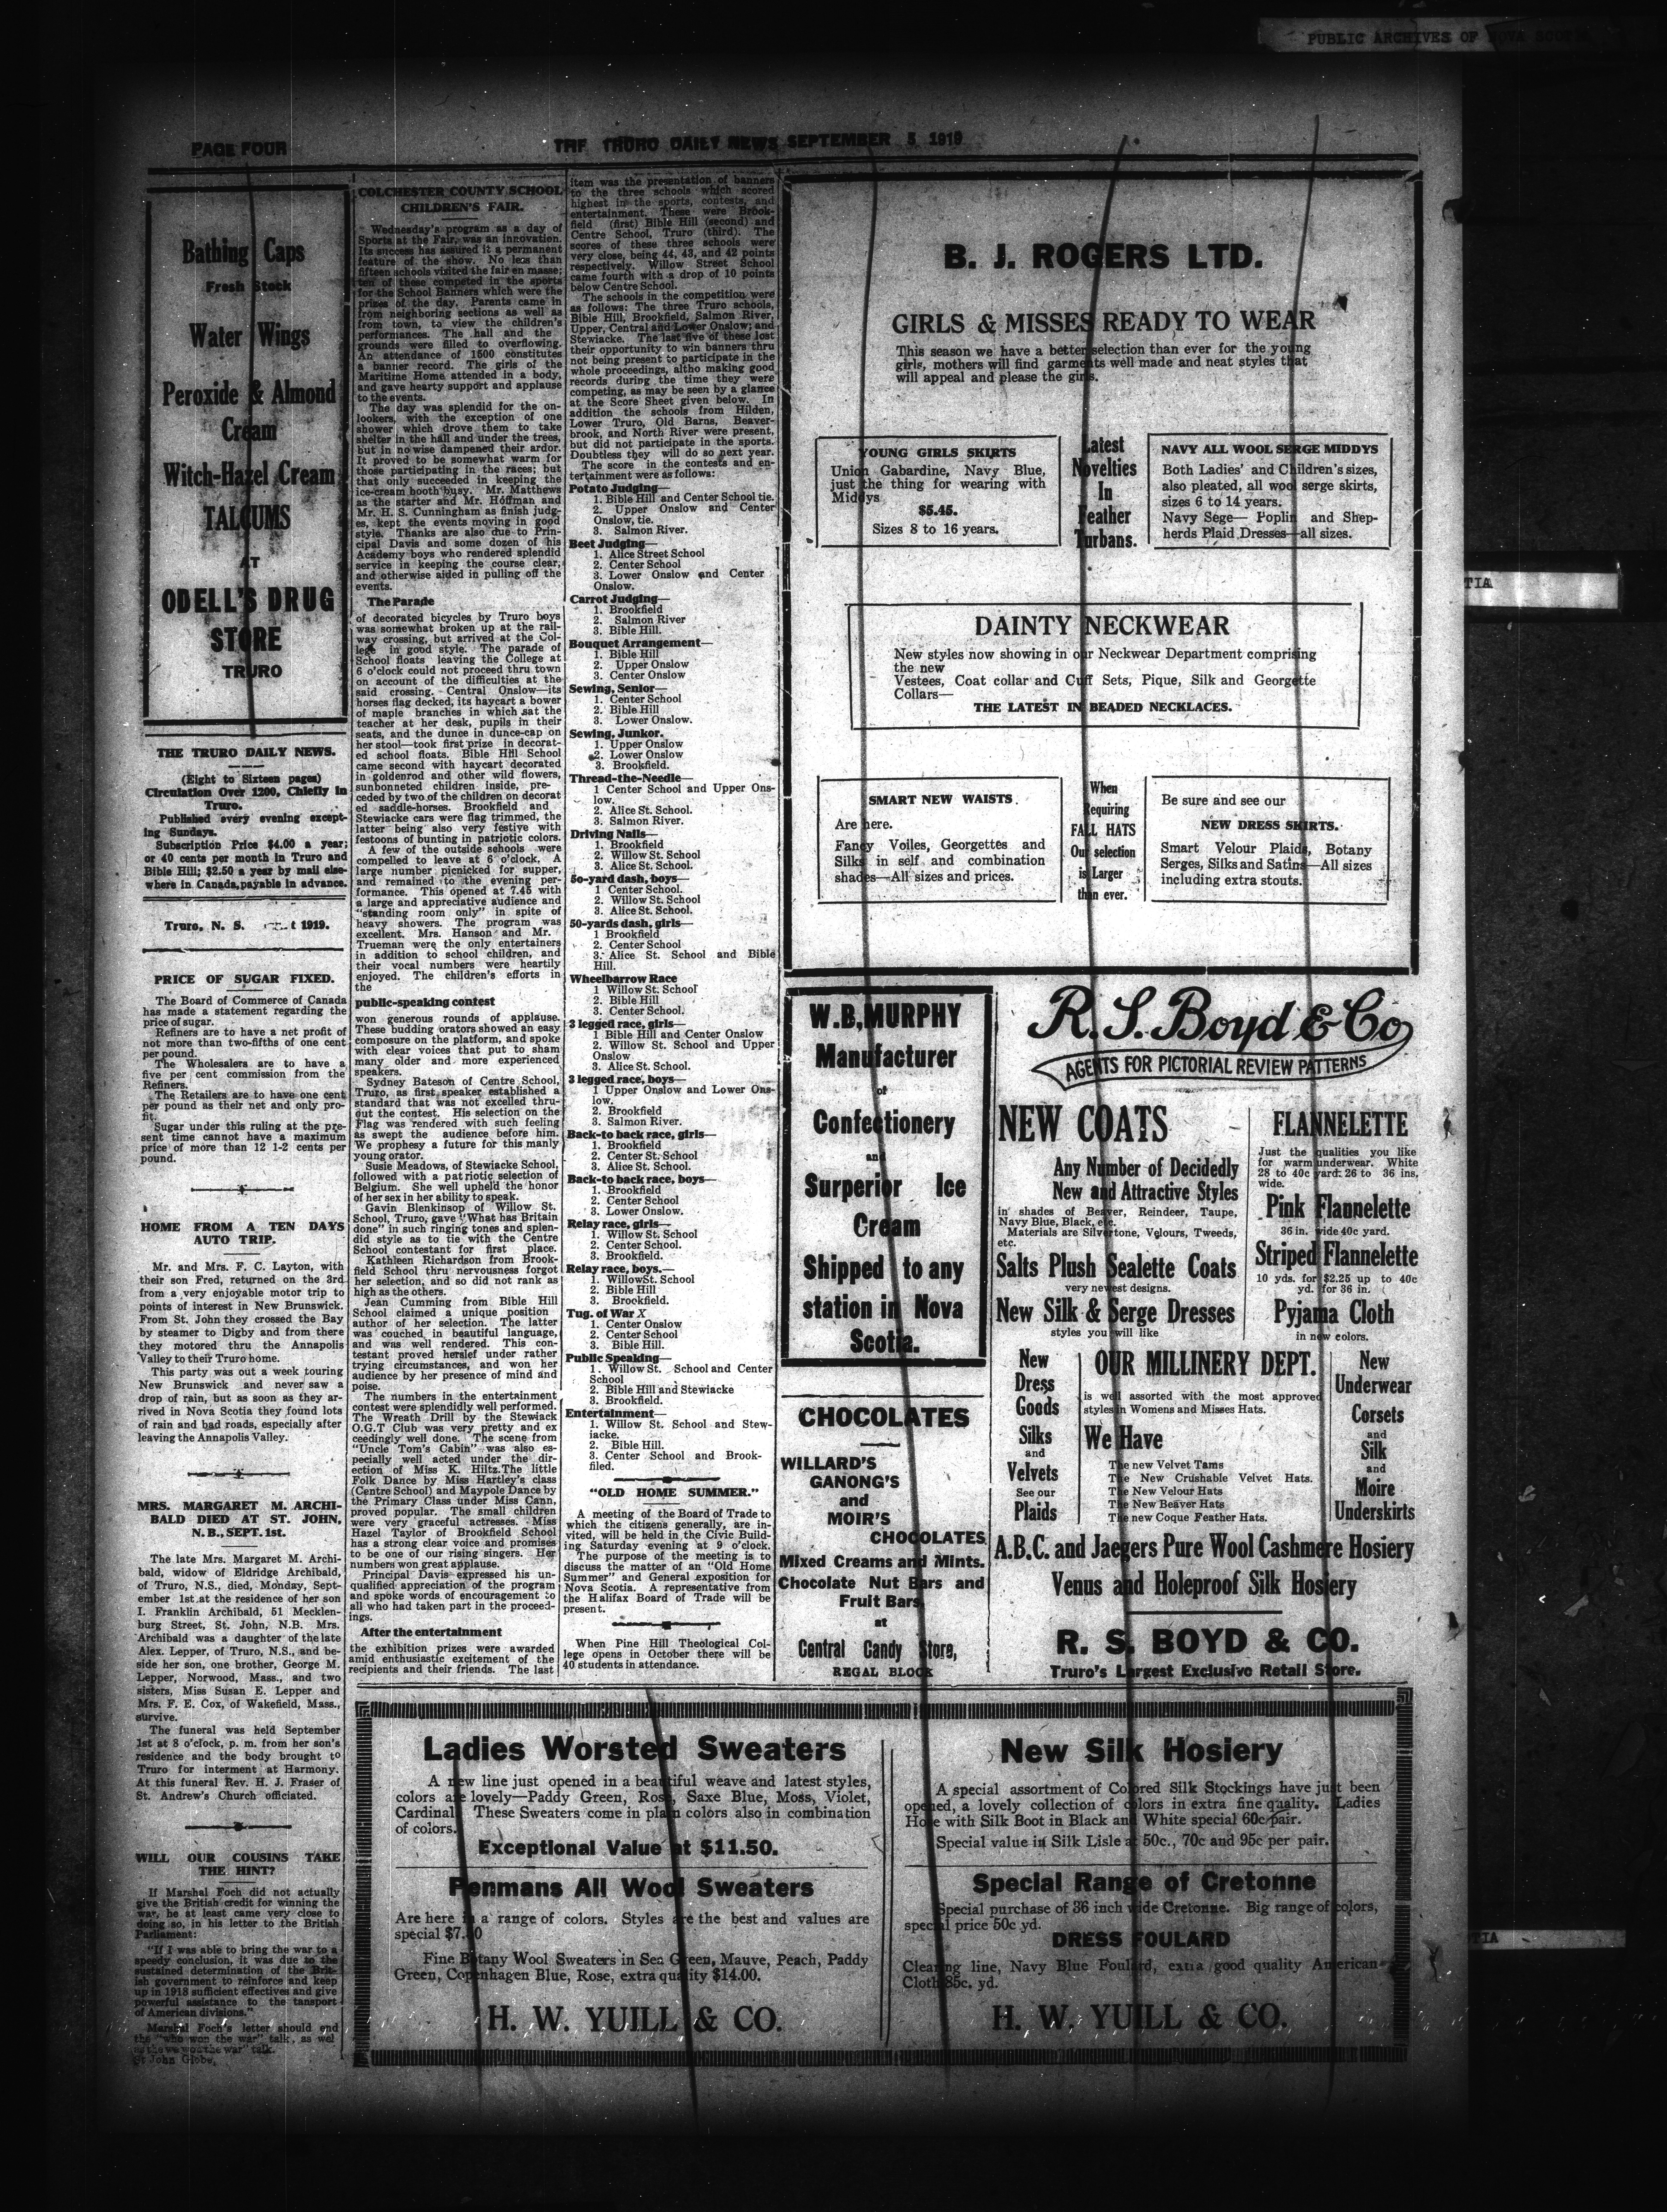 PUBLIC ARCHIVES OF NOVA SCOTIA
PAGE FOUR
THE TRURO DAILY NEWS SEPTEMBER 5 1919
Bathing Caps
Fresh Stock
Water Wings
Peroxide & Almond
Cream
Witch-Hazel Cream
TALCUMS
AT
ODELL'S DRUG
STORE
TRURO
THE TRURO DAILY NEWS.
(Eight to Sixteen pages)
Circulation Over 1200, Chiefly in
Truro.
Published every evening except-
ing Sundays.
Subscription Price $4.00 a year;
or 40 cents per month in Truro and
Bible Hill; $2.50 a year by mail else-
where in Canada, payable in advance.
Truro, N. S. t 1919.
PRICE OF SUGAR FIXED.
The Board of Commerce of Canada
has made a statement regarding the
price of sugar.
Refiners are to have a net profit of
not more than two-fifths of one cent
per pound.
The Wholesalers are to have a
five per cent commission from the
Refiners.
The Retailers are to have one cent
per pound as their net and only pro-
fit.
Sugar under this ruling at the pre-
sent time cannot have a maximum
price of more than 12 1-2 cents per
pound.
HOME FROM A TEN DAYS
AUTO TRIP.
Mr. and Mrs. F. C. Layton, with
their son Fred, returned on the 3rd
from a very enjoyable motor trip to
points of interest in New Brunswick.
From St. John they crossed the Bay
by steamer to Digby and from there
they motored thru the Annapolis
Valley to their Truro home.
This party was out a week touring
New Brunswick and never saw a
drop of rain, but as soon as they ar-
rived in Nova Scotia they found lots
of rain and bad roads, especially after
leaving the Annapolis Valley.
MRS. MARGARET M. ARCHI-
BALD DIED AT ST. JOHN,
N. B., SEPT. 1st.
The late Mrs. Margaret M. Archi-
bald, widow of Eldridge Archibald,
of Truro, N.S., died, Monday, Sept-
ember 1st at the residence of her son
I. Franklin Archibald, 51 Mecklen-
burg Street, St. John, N.B. Mrs.
Archibald was a daughter of the late
Alex. Lepper, of Truro, N.S., and be-
side her son, one brother, George M.
Lepper, Norwood, Mass., and two
sisters, Miss Susan E. Lepper and
Mrs. F. E. Cox, of Wakefield, Mass.,
survive.
The funeral was held September
1st at 8 o'clock, p. m. from her son's
residence and the body brought to
Truro for interment at Harmony.
At this funeral Rev. H. J. Fraser of
St. Andrew's Church officiated.
WILL OUR COUSINS TAKE
THE HINT?
If Marshal Foch did not actually
give the British credit for winning the
war, he at least came very close to
doing so, in his letter to the British
Parliament:
"If I was able to bring the war to a
speedy conclusion, it was due to the
sustained determination of the Brit-
ish government to reinforce and keep
up in 1918 sufficient effectives and give
powerful assistance to the tansport
of American divisions."
Marshal Foch's letter should end
the "who won the war" talk, as wel
as the we won the war" talk.
St John Globe.
COLCHESTER COUNTY SCHOOL
CHILDREN'S FAIR.
Wednesday's program as a day of
Sports at the Fair, was an innovation.
Its success has assured it a permanent
feature of the show. No less than
fifteen schools visited the fair en masse;
ten of these competed in the sports
for the School Banners which were the
prizes of the day. Parents came in
from neighboring sections as well as
from town, to view the children's
performances. The hall and the
grounds were filled to overflowing.
An attendance of 1600 constitutes
a banner record. The girls of the
Maritime Home attended in a body,
and gave hearty support and applause
to the events.
The day was splendid for the on-
lookers, with the exception of one
shower which drove them to take
shelter in the hall and under the trees,
but in no wise dampened their ardor.
It proved to be somewhat warm for
those participating in the races; but
that only succeeded in keeping the
ice-cream booth busy. Mr. Matthews
as the starter and Mr. Hoffman and
Mr. H. S. Cunningham as finish judg-
es, kept the events moving in good
style. Thanks are also due to Prin-
cipal Davis and some dozen of his
Academy boys who rendered splendid
service in keeping the course clear,
and otherwise aided in pulling off the
events.
The Parade
of decorated bicycles by Truro boys
was somewhat broken up at the rail-
way crossing, but arrived at the Col-
lege in good style. The parade of
School floats leaving the College at
6 o'clock could not proceed thru town
on account of the difficulties at the
said crossing. Central Onslow—its
horses flag decked, its haycart a bower
of maple branches in which sat the
teacher at her desk, pupils in their
seats, and the dunce in dunce-cap on
her stool—took first prize in decorat-
ed school floats. Bible Hill School
came second with haycart decorated
in goldenrod and other wild flowers,
sunbonneted children inside, pre-
ceded by two of the children on decorat
ed saddle-horses. Brookfield and
Stewiacke cars were flag trimmed, the
latter being also very festive with
festoons of bunting in patriotic colors.
A few of the outside schools were
compelled to leave at 6 o'clock. A
large number picnicked for supper,
and remained to the evening per-
formance. This opened at 7.45 with
a large and appreciative audience and
"standing room only" in spite of
heavy showers. The program was
excellent. Mrs. Hanson and Mr.
Trueman were the only entertainers
in addition to school children, and
their vocal numbers were heartily
enjoyed. The children's efforts in
the
public-speaking contest
won generous rounds of applause.
These budding orators showed an easy
composure on the platform, and spoke
with clear voices that put to sham
many older and more experienced
speakers.
Sydney Bateson of Centre School,
Truro, as first speaker established a
standard that was not excelled thru-
out the contest. His selection on the
Flag was rendered with such feeling
as swept the audience before him.
We prophesy a future for this manly
young orator.
Susie Meadows, of Stewiacke School,
followed with a patriotic selection of
Belgium. She well upheld the honor
of her sex in her ability to speak.
Gavin Blenkinsop of Willow St.
School, Truro, gave "What has Britain
done" in such ringing tones and splen-
did style as to tie with the Centre
School contestant for first place.
Kathleen Richardson from Brook-
field School thru nervousness forgot
her selection, and so did not rank as
high as the others.
Jean Cumming from Bible Hill
School claimed a unique position
author of her selection. The latter
was couched in beautiful language,
and was well rendered. This con-
testant proved herslef under rather
trying circumstances, and won her
audience by her presence of mind and
poise.
The numbers in the entertainment
contest were splendidly well performed.
The Wreath Drill by the Stewiack
O.G.T Club was very pretty and ex
ceedingly well done. The scene from
"Uncle Tom's Cabin" was also es-
pecially well acted under the dir-
ection of Miss K. Hiltz.The little
Folk Dance by Miss Hartley's class
(Centre School) and Maypole Dance by
the Primary Class under Miss Cann,
proved popular. The small children
were very graceful actresses. Miss
Hazel Taylor of Brookfield School
has a strong clear voice and promises
to be one of our rising singers. Her
numbers won great applause.
Principal Davis expressed his un-
qualified appreciation of the program
and spoke words of encouragement to
all who had taken part in the proceed-
ings.
After the entertainment
the exhibition prizes were awarded
amid enthusiastic excitement of the
recipients and their friends. The last
item was the presentation of banners
to the three schools which scored
highest in the sports, contests, and
entertainment. These were Brook-
field (first) Bible Hill (second) and
Centre School, Truro (third). The
scores of these three schools were
very close, being 44, 43, and 42 points
respectively. Willow Street School
came fourth with a drop of 10 points
below Centre School.
The schools in the competition were
as follows: The three Truro schools,
Bible Hill, Brookfield, Salmon River,
Upper, Central and Lower Onslow; and
Stewiacke. The last five of these lost
their opportunity to win banners thru
not being present to participate in the
whole proceedings, altho making good
records during the time they were
competing, as may be seen by a glance
at the Score Sheet given below. In
addition the schools from Hilden,
Lower Truro, Old Barns, Beaver-
brook, and North River were present,
but did not participate in the sports.
Doubtless they will do so next year.
The score in the contests and en-
tertainment were as follows:
Potato Judging—
1. Bible Hill and Center School tie.
2. Upper Onslow and Center
Onslow, tie.
3. Salmon River.
Beet Judging—
1. Alice Street School
2. Center School
3. Lower Onslow and Center
Onslow.
Carrot Judging—
1. Brookfield
2. Salmon River
3. Bible Hill.
Bouquet Arrangement—
1. Bible Hill
2. Upper Onslow
3. Center Onslow
Sewing, Senior—
1. Center School
2. Bible Hill
3. Lower Onslow.
Sewing, Junkor.
1. Upper Onslow
2. Lower Onslow
3. Brookfield.
Thread-the-Needle—
1 Center School and Upper Ons-
low.
2. Alice St. School.
3. Salmon River.
Driving Nails—
1. Brookfield
2. Willow St. School
3. Alice St. School.
5o-yard dash, boys—
1 Center School.
2. Willow St. School
3. Alice St. School.
50-yards dash, girls—
1 Brookfield
2. Center School
3. Alice St. School and Bible
Hill.
Wheelbarrow Race
1 Willow St. School
2. Bible Hill
3. Center School.
3 legged race, girls—
1 Bible Hill and Center Onslow
2. Willow St. School and Upper
Onslow
3. Alice St. School.
3 legged race, boys—
1 Upper Onslow and Lower Ons-
low.
2. Brookfield
3. Salmon River.
Back-to back race, girls—
1. Brookfield
2. Center St. School
3. Alice St. School.
Back-to back race, boys—
1. Brookfield
2. Center School
3. Lower Onslow.
Relay race, girls—
1. Willow St. School
2. Center School.
3. Brookfield.
Relay race, boys.—
1. WillowSt. School
2. Bible Hill
3. Brookfield.
Tug. of War X
1. Center Onslow
2. Center School
3. Bible Hill.
Public Speaking—
1. Willow St. School and Center
School
2. Bible Hill and Stewiacke
3. Brookfield.
Entertainment—
1. Willow St. School and Stew-
iacke.
2. Bible Hill.
3. Center School and Brook-
filed.
"OLD HOME SUMMER."
A meeting of the Board of Trade to
which the citizens generally, are in-
vited, will be held in the Civic Build-
ing Saturday evening at 9 o'clock.
The purpose of the meeting is to
discuss the matter of an "Old Home
Summer" and General exposition for
Nova Scotia. A representative from
the Halifax Board of Trade will be
present.
When Pine Hill Theological Col-
lege opens in October there will be
40 students in attendance.
B. J. ROGERS LTD.
GIRLS & MISSES READY TO WEAR
This season we have a better selection than ever for the young
girls, mothers will find garments well made and neat styles that
will appeal and please the girls.
YOUNG GIRLS SKIRTS
Union Gabardine, Navy Blue,
just the thing for wearing with
Middys
$5.45.
Sizes 8 to 16 years.
Latest
Novelties
In
Feather
Turbans.
NAVY ALL WOOL SERGE MIDDYS
Both Ladies' and Children's sizes,
also pleated, all wool serge skirts,
sizes 6 to 14 years.
Navy Sege— Poplin and Shep-
herds Plaid Dresses—all sizes.
DAINTY NECKWEAR
New styles now showing in our Neckwear Department comprising
the new
Vestees, Coat collar and Cuff Sets, Pique, Silk and Georgette
Collars—
THE LATEST IN BEADED NECKLACES.
SMART NEW WAISTS.
Are here.
Fancy Voiles, Georgettes and
Silks in self and combination
shades—All sizes and prices.
When
Requiring
FALL HATS
Our selection
is Larger
than ever.
Be sure and see our
NEW DRESS SKIRTS.
Smart Velour Plaids, Botany
Serges, Silks and Satins—All sizes
including extra stouts.
W.B, MURPHY
Manufacturer
of
Confectionery
and
Surperior Ice
Cream
Shipped to any
station in Nova
Scotia.
CHOCOLATES
WILLARD'S
GANONG'S
and
MOIR'S
CHOCOLATES
Mixed Creams and Mints.
Chocolate Nut Bars and
Fruit Bars,
at
Central Candy Store,
REGAL BLOCK
R. S. Boyd & Co
AGENTS FOR PICTORIAL REVIEW PATTERNS
NEW COATS
Any Number of Decidedly
New and Attractive Styles
in shades of Beaver, Reindeer, Taupe,
Navy Blue, Black, etc.
Materials are Silvertone, Velours, Tweeds,
etc.
Salts Plush Sealette Coats
very newest designs.
New Silk & Serge Dresses
styles you will like
FLANNELETTE
Just the qualities you like
for warm underwear. White
28 to 40c yard: 26 to 36 ins.
wide.
Pink Flannelette
36 in. wide 40c yard.
Striped Flannelette
10 yds. for $2.25 up to 40c
yd. for 36 in.
Pyjama Cloth
in new colors.
New
Dress
Goods
Silks
and
Velvets
See our
Plaids
OUR MILLINERY DEPT.
is well assorted with the most approved
styles in Womens and Misses Hats.
We Have
The new Velvet Tams
The New Crushable Velvet Hats.
The New Velour Hats
The New Beaver Hats
The new Coque Feather Hats.
New
Underwear
Corsets
and
Silk
and
Moire
Underskirts
A.B.C. and Jaegers Pure Wool Cashmere Hosiery
Venus and Holeproof Silk Hosiery
R. S. BOYD & CO.
Truro's Largest Exclusive Retail Store.
Ladies Worsted Sweaters
A new line just opened in a beautiful weave and latest styles,
colors are lovely—Paddy Green, Rose, Saxe Blue, Moss, Violet,
Cardinal. These Sweaters come in plain colors also in combination
of colors.
Exceptional Value at $11.50.
Penmans All Wool Sweaters
Are here in a range of colors. Styles are the best and values are
special $7.50
Fine Botany Wool Sweaters in Sea Green, Mauve, Peach, Paddy
Green, Copenhagen Blue, Rose, extra quality $14.00.
H. W. YUILL & CO.
New Silk Hosiery
A special assortment of Colored Silk Stockings have just been
opened, a lovely collection of colors in extra fine quality. Ladies
Hose with Silk Boot in Black and White special 60c pair.
Special value in Silk Lisle at 50c., 70c and 95c per pair.
Special Range of Cretonne
Special purchase of 36 inch wide Cretonne. Big range of colors,
special price 50c yd.
DRESS FOULARD
Clearing line, Navy Blue Foulard, extia good quality American
Cloth 85c. yd.
H. W. YUILL & CO.
TIA
TIA